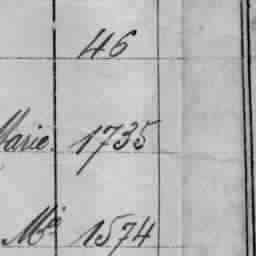 46
Marie. 1735
Mie 1574